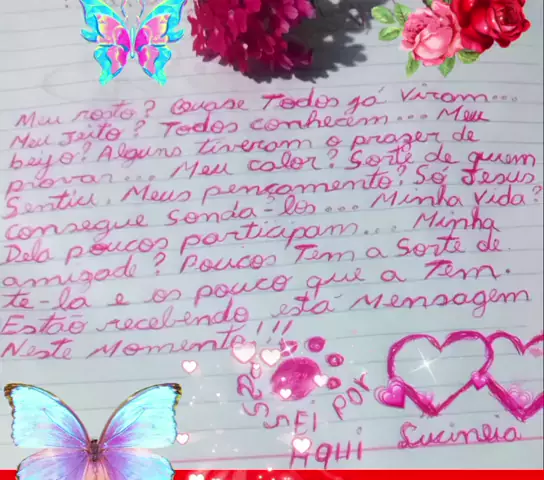 Meu rosto? Quase Todos já viram...
Meu Jeito? Todos conhecem... Meu
beijo? Alguns tiveram o prazer de
provar... Meu calor? Sorte de quem
Sentiu. Meus pençamento? Só Jesus
consegue Sonda-los... Minha vida?
Dela poucos participam... Minha
amizade? Poucos Tem a Sorte de
te-la e os pouco que a Tem.
Estão recebendo está Mensagem
Neste Momento!!!
Passei por
Aqui
Lucineia